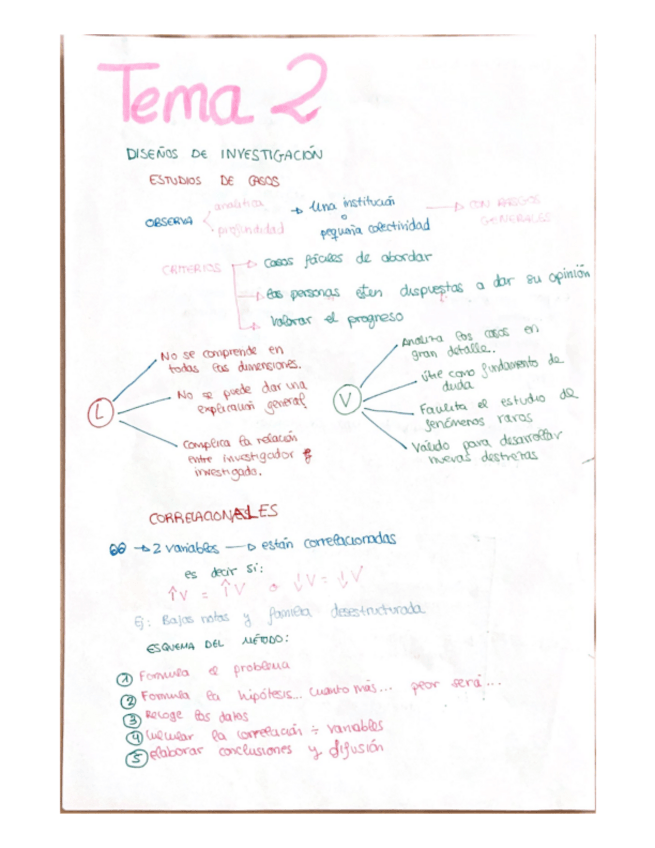 Tema 2
DISEÑOS DE INVESTIGACIÓN
ESTUDIOS DE CASOS
OBSERVA
analítica
profundidad
Una institución
o
pequeña colectividad
CON RASGOS
GENERALES
CRITERIOS
Casos fáciles de abordar
Las personas estén dispuestas a dar su opinión
Valorar el progreso
L
No se comprende en
todas las dimensiones.
No se puede dar una
explicación general
Complica la relación
entre investigador e
investigado.
V
Analiza los casos en
gran detalle.
Útil como fundamento de
duda
Facilita el estudio de
fenómenos raros
Válido para desarrollar
nuevas destrezas
CORRELACIONALES
2 variables → están correlacionadas
es decir si:
↑V = ↑V o ↓V = ↓V
Ej: Bajas notas y familia desestructurada
ESQUEMA DEL MÉTODO:
1 Formula el problema
2 Formula la hipótesis... Cuanto más... peor será...
3 Recoge los datos
4 Calcular la correlación ÷ variables
5 elaborar conclusiones y difusión